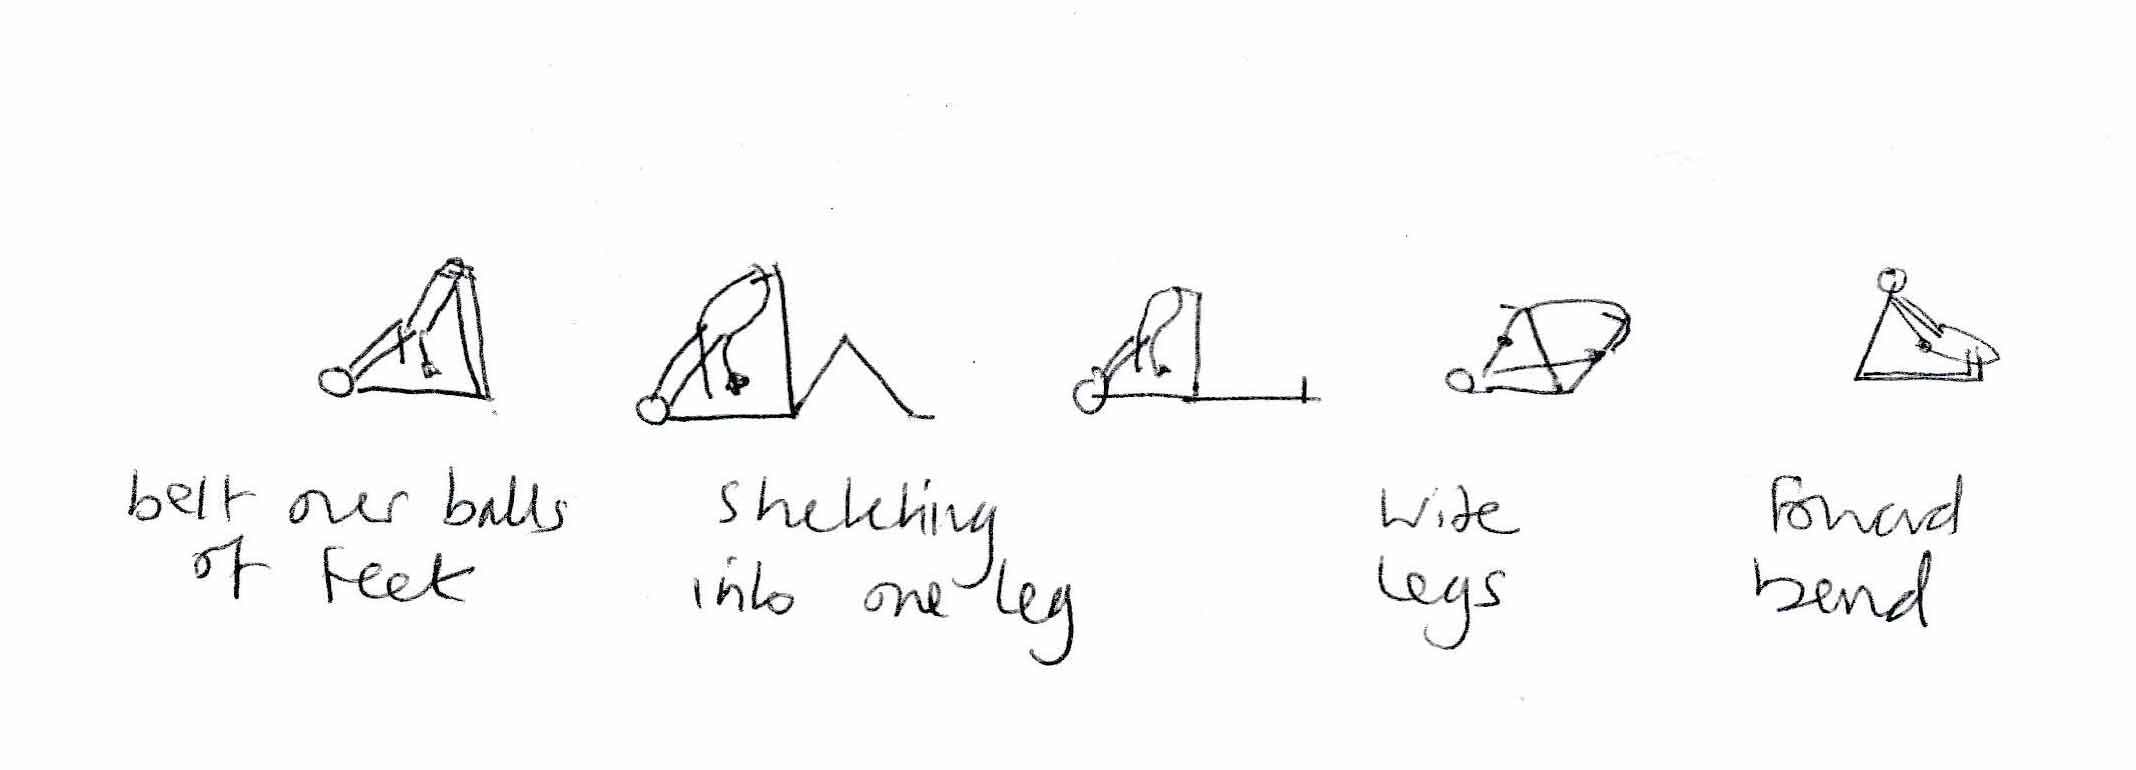 belt over balls
of feet
Stretching
into one leg
Wide
legs
Forward
bend